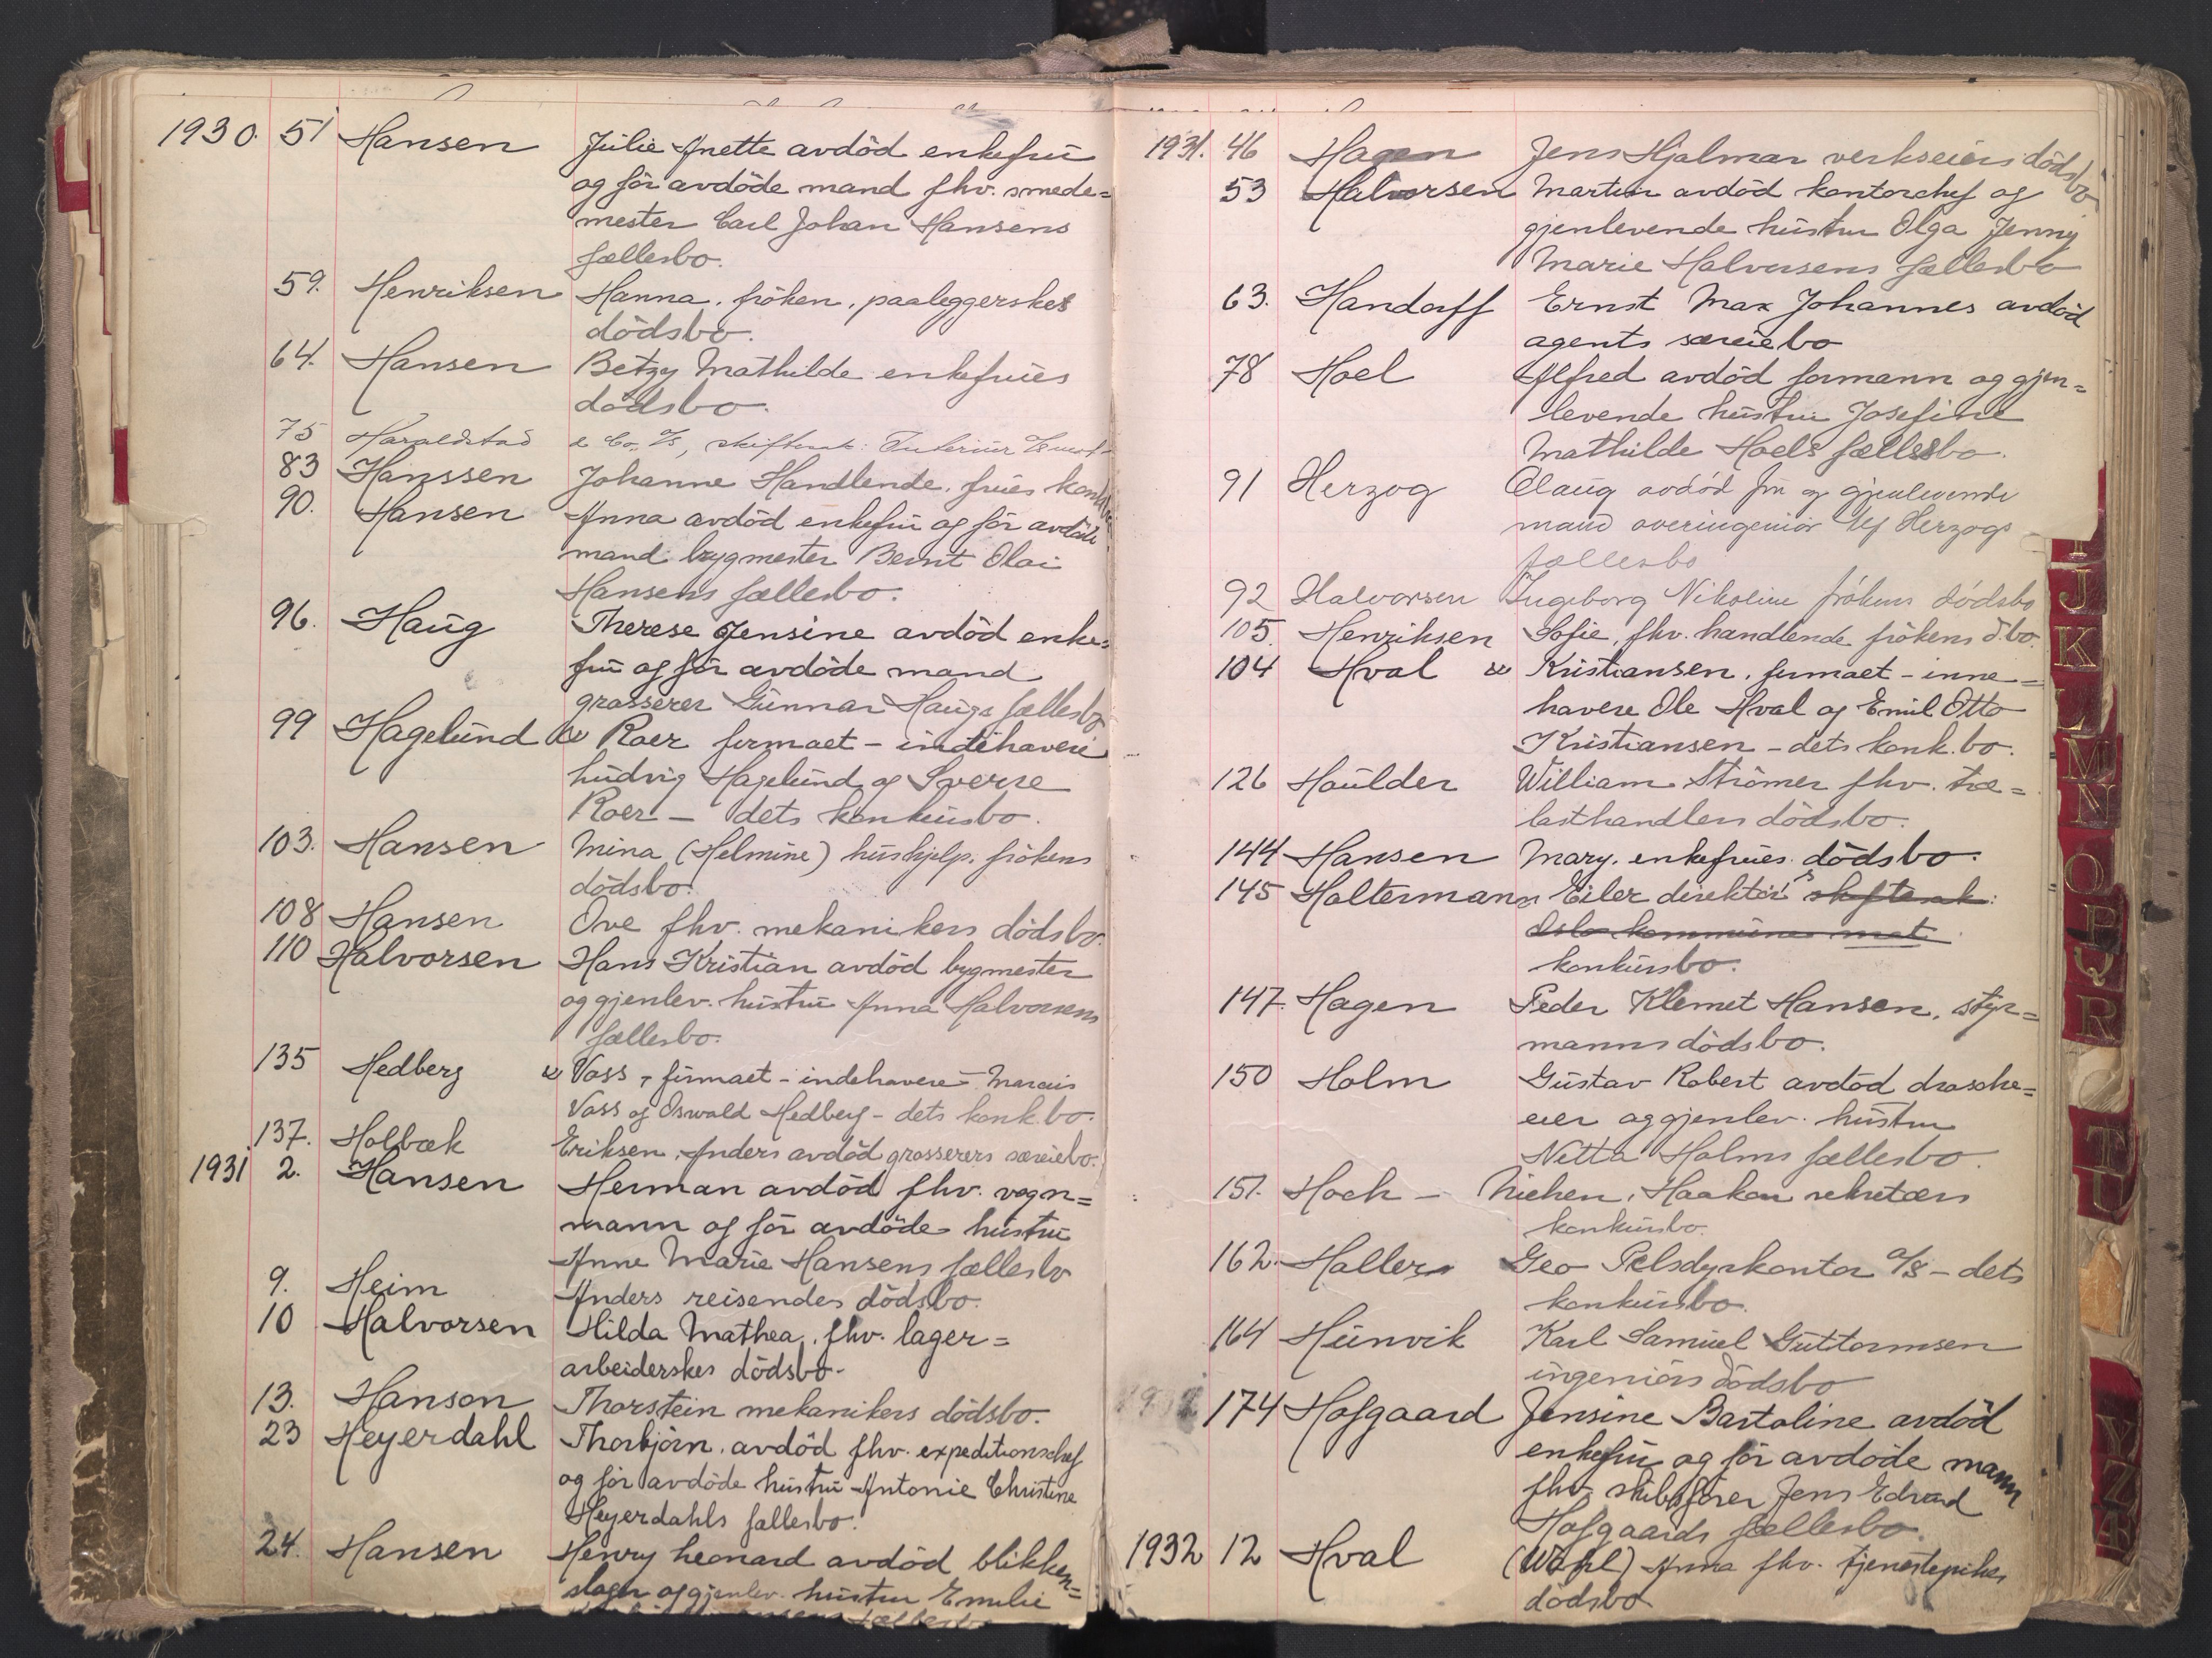 1930. 51 Hansen Julie Anette avdöd enkefrü
og för avdöde mand fhv. smede=
mester Carl Johan Hansens
fællesbo.
59. Henriksen Hanna, fröken, paaleggerskes
dödsbo.
64. Hansen Betzy Mathilde enkefrües
dödsbo.
75 Haraldstad & Co. A/s,
83 Hanssen Johanne Handlende, frües
90. Hansen Anna avdöd enkefrü og för avdöde
mand bygmester Bernt Olai
Hansens fællesbo.
96. Haüg Therese Jensine avdöd enke=
frü og för avdöde mand
grosserer Günnar Haugs fællesbo
99 Hagelünd & Roer firmaet - indehavere
Ludvig Hagelünd og Sverre
Roer - dets konkürsbo.
103. Hansen Mina (Helmine) hüshjelp. frökens
dödsbo.
108 Hansen Ove fhv. mekanikers dödsbo.
110 Halvorsen Hans Kristian avdöd bygmester
og gjenlev. hüstrü Anna Halvorsens
fællesbo.
135 Hedberg & Voss, firmaet - indehavere
Voss og Oswald Hedberg - dets konk.bo.
137. Holbæk Eriksen, Anders avdöd grosserers særeiebo.
1931 2. Hansen Herman avdöd fhv. vogn=
mann og för avdöde hüstrü
Anne Marie Hansens fællesbo
9. Heim Anders reisendes dödsbo.
10 Halvorsen Hilda Mathea, fhv. lager=
arbeiderskes dödsbo.
13. Hanson Thorstein mekanikers dödsbo.
23 Heyerdahl Thorbjörn, avdöd fhv. expeditionschef
og för avdöde hüstrü Antonie Christine
Heyerdahls fællesbo.
24. Hansen Henry Leonard avdöd blikken=
slager og gjenlev. hüstrü Emilie
fællesbo
1931. 46 Hagen Jens Hjalmar verkseiers dödsbo
53 Halvorsen Martin avdöd kontorchef og
gjenlevende hüstru Olga Jenny
Marie Halvorsens fællesbo
63. Handorff Ernst Max Johannes avdöd
agents særeiebo
78 Hoel Alfred avdöd formann og gjen=
levende hüstrü Josefine
Mathilde Hoels fællesbo.
91 Herzog Olaüg avdöd fru og gjenlevende
mand overingeniör Herzogs
fællesbo
92 Halvorsen Ingeborg Nikoline frökens dödsbo
105. Henriksen Sofie, fhv. handlende frökens d.bo.
104 Hval & Kristiansen, firmaet - inne=
havere Ole Hval og Emil Otto
Kristiansen - dets konk.bo.
126 Haülder William Strömer fhv. træ=
lasthandlers dödsbo.
144 Hansen Mary. enkefrües dödsbo.
145 Holtermann Eiler direktörs skiftenk:
Oslo kommünes mat.
konkürsbo.
147. Hagen Peder Klemet Hansen, styr=
manns dödsbo.
150 Holm Güstav Robert avdöd drosche=
eier og gjenlev. hüstru
Netta Holms fællesbo.
151. Hoch - Nielsen, Haakon sekretærs
konkürsbo.
162. Hallers Geo Pelsdyrkontor A/S - dets
konkürsbo.
164 Hünvik Karl Samüel Guttormsen
ingeniörs dödsbo
174 Hofgaard Jensine Bartoline avdöd
enkefrü og för avdöde mann
fhv. skibsförer Jens Edvard
Hofgaards fællesbo.
1932 12 Hval (Wahl) Anna fhv. tjenestepikes
dödsbo
J
K
L
M
N
O
P
Q
R
T
U
Y
Z